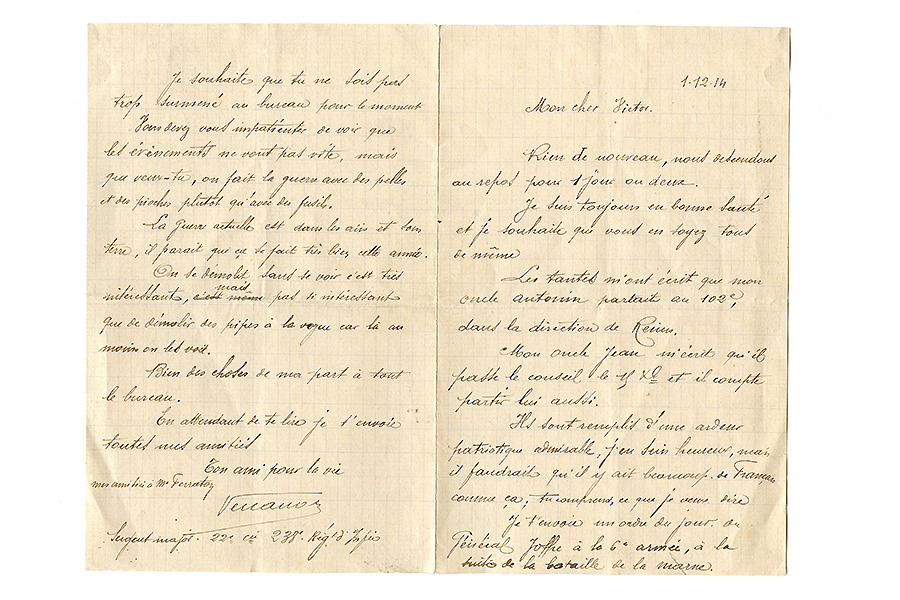 1-12-14
Mon cher Victor.
Rien de nouveau, nous descendons
au repos pour 1 jour ou deux.
Je suis toujours en bonne santé
et je souhaite que vous en soyez tous
de même
Les tantes m'ont écrit que mon
oncle antonin partait au 102e,
dans la direction de Reims.
Mon oncle Jean m'écrit qu'il
passe le conseil le 15 Xbre et il compte
partir lui aussi.
Ils sont remplis d'une ardeur
patriotique admirable, j'en suis heureux, mais
il faudrait qu'il y ait beaucoup de Français
comme ça, tu comprends, ce que je veux dire
Je t'envoie un ordre du jour du
Général Joffre à la 6e armée, à la
suite de la bataille de la marne.
Je souhaite que tu ne sois pas
trop surmené au bureau pour le moment
Vous devez vous impatienter de voir que
les évènements ne vont pas vite, mais
que veux-tu, on fait la guerre avec des pelles
et des pioches plutôt qu'avec des fusils.
La guerre actuelle est dans les airs et sous
terre, il parait que ça se fait très bien cette année.
On se démolit sans se voir c'est très
intéressant, c'est même mais pas si intéressant
que de démolir des pipes à la vogue car là au
moins on les voit.
Bien des choses de ma part à tout
le bureau.
En attendant de te lire je t'envoie
toutes mes amitiés
Ton ami pour la vie
mes amitiés à Mr
Sergent major. 22e cie 238e Régt d'Infie